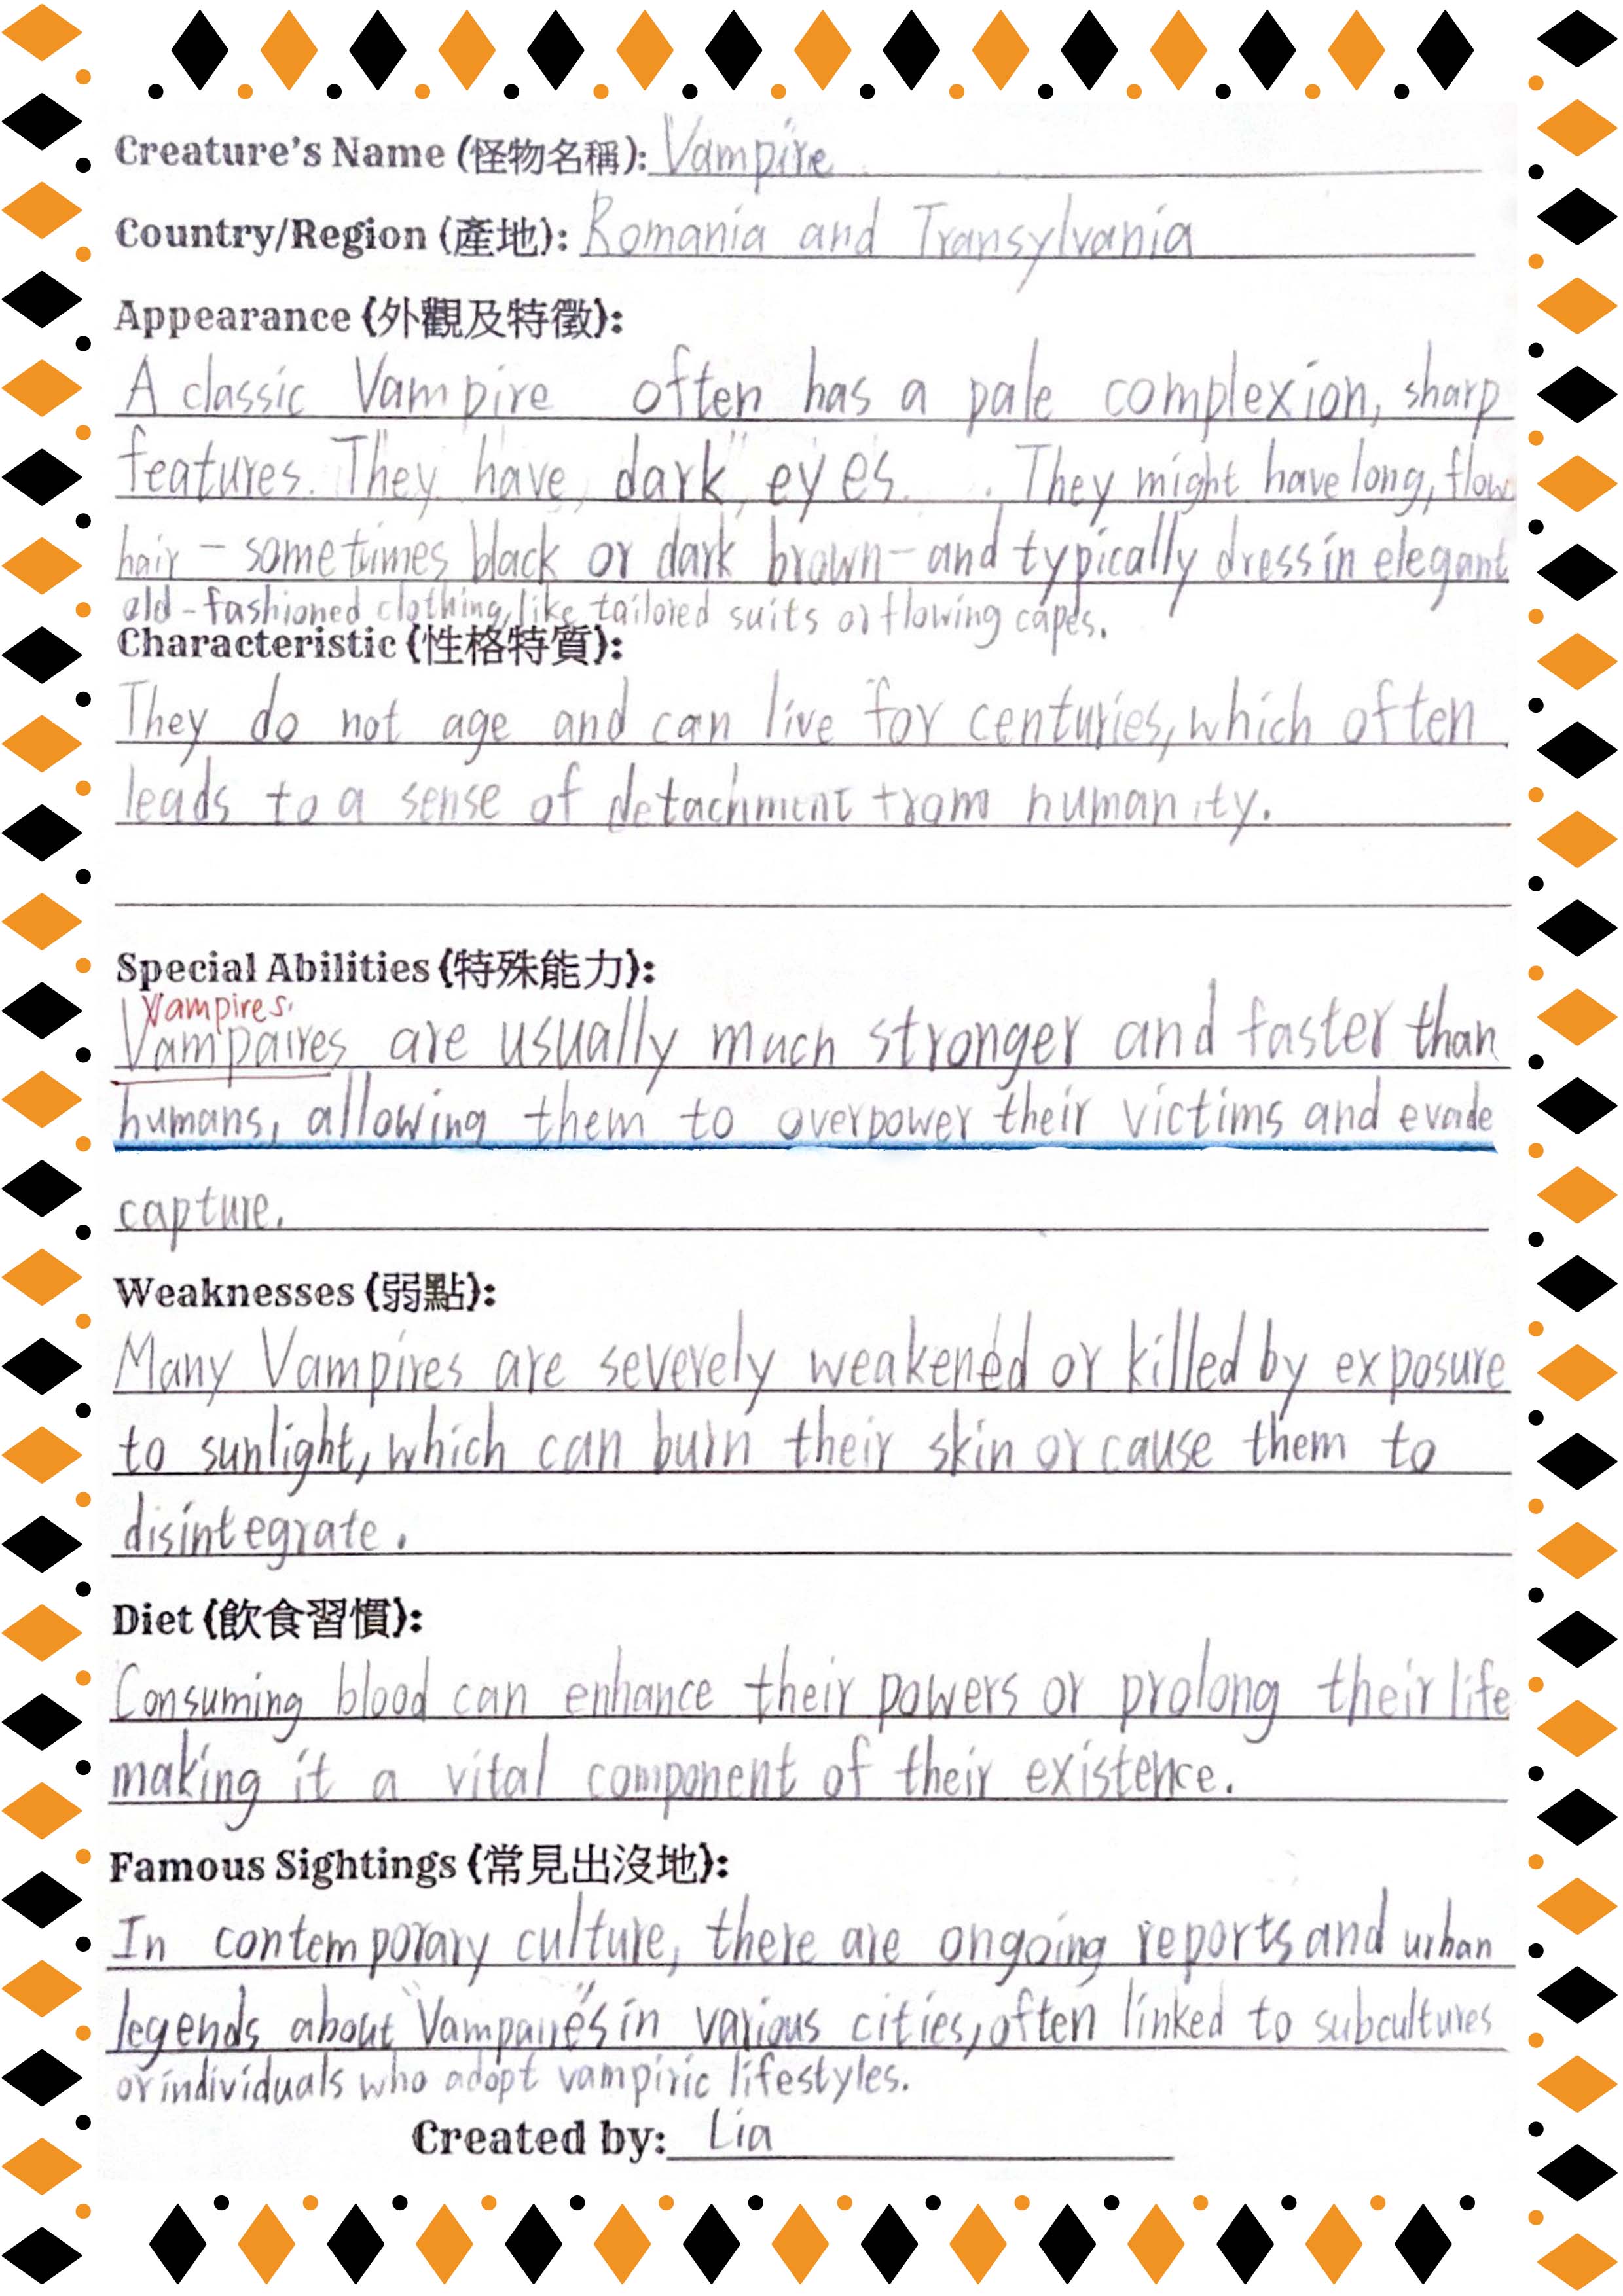 Creature's Name (怪物名稱): Vampire
Country/Region (產地): Romania and Transylvania
Appearance (外觀及特徵):
A classic Vampire often has a pale complexion, sharp
features. They have dark eyes. They might have long, flow
hair – sometimes black or dark brown – and typically dress in elegant
old-fashioned clothing, like tailored suits or flowing capes.
Characteristic (性格特質):
They do not age and can live for centuries, which often
leads to a sense of detachment from humanity.
Special Abilities (特殊能力):
Vampires
Vampaires are usually much stronger and faster than
humans, allowing them to overpower their victims and evade
capture.
Weaknesses (弱點):
Many Vampires are severely weakened or killed by exposure
to sunlight, which can burn their skin or cause them to
disintegrate.
Diet (飲食習慣):
Consuming blood can enhance their powers or prolong their life
making it a vital component of their existence.
Famous Sightings (常見出沒地):
In contemporary culture, there are ongoing reports and urban
legends about "Vampaires" in various cities, often linked to subcultures
or individuals who adopt vampiric lifestyles.
Created by: Lia